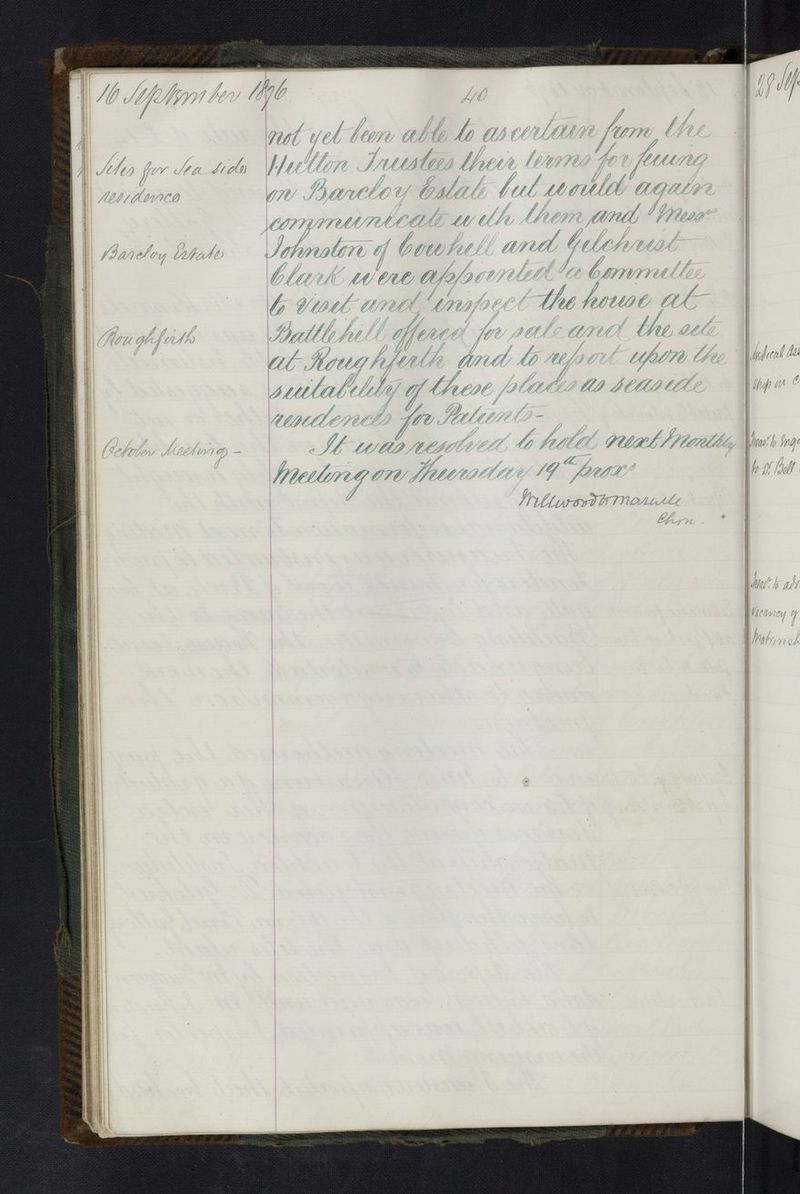 16 September 1876
40
not yet been able to ascertain from the
Sites for Sea side
Hutton Trustees their terms for feuing
residence
on Barcloy Estate but would again
communicate with them and Messrs
Barcloy Estate
Johnston of Cowhill and Gilchrist
Clark were appointed a Committee
to visit and inspect the house at
Roughfirth
Battlehill offered for sale and the site
at Roughfirth and to report upon the
suitability of these places as seaside
residences for Patients -
October Meeting -
It was resolved to hold next Monthly
Meeting on Thursday 19th proxo
Wellwood Maxwell
Chn.
28 Sep
to Dr Bell
vacancy